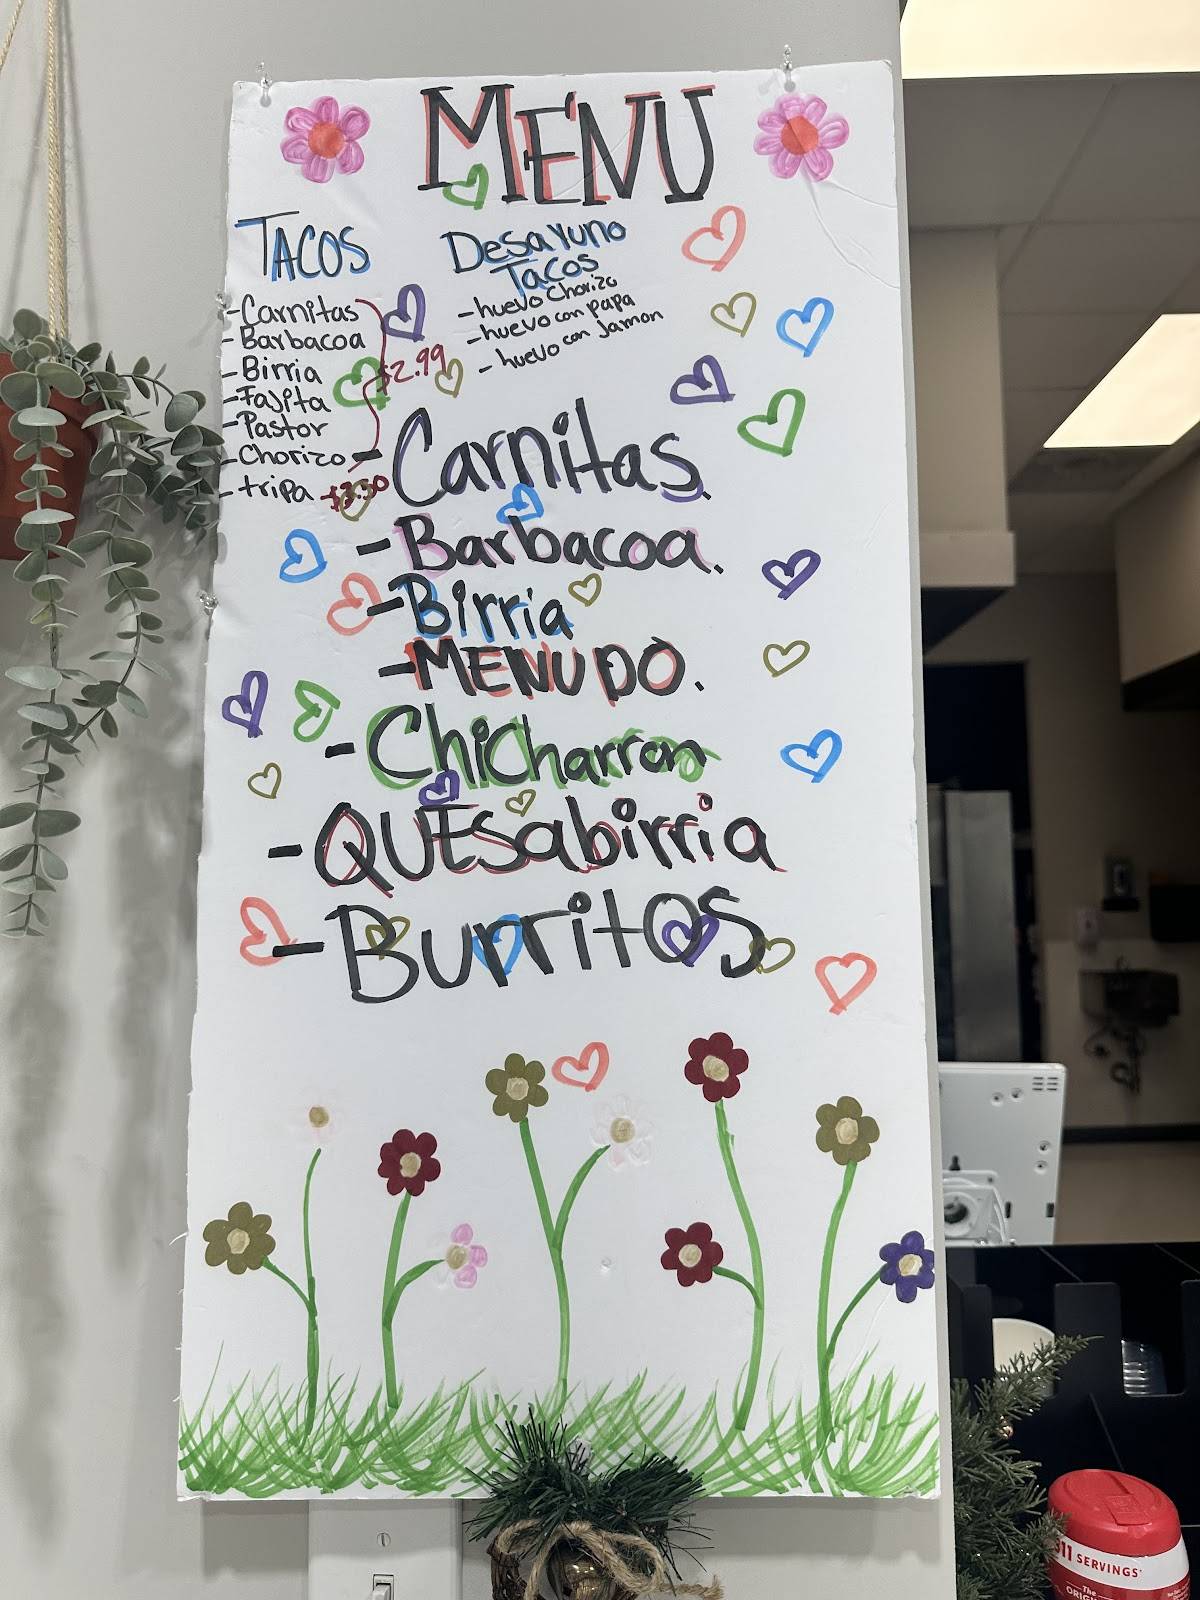 MENU
TACOS
-Carnitas
-Barbacoa
-Birria
-Fajita
-Pastor
-Chorizo
-tripa
$2.99
$3.50
Desayuno
Tacos
-huevo Chorizo
-huevo con papa
-huevo con Jamon
-Carnitas.
-Barbacoa.
-Birria
-MENUDO.
-Chicharron
-QUESabirria
-Burritos
311 SERVINGS*
The